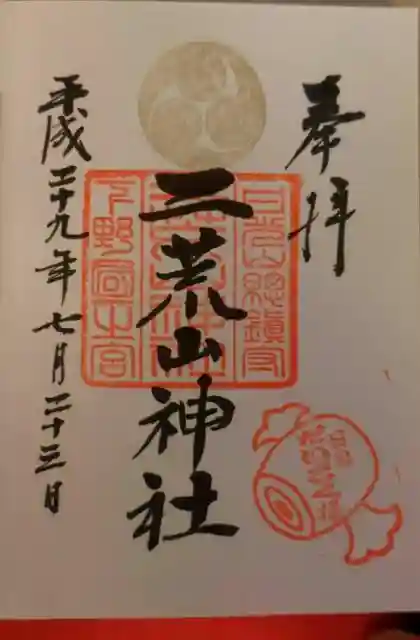 奉拝
二荒山神社
平成二十九年七月二十三日
日光山総鎮守
下野国一之宮